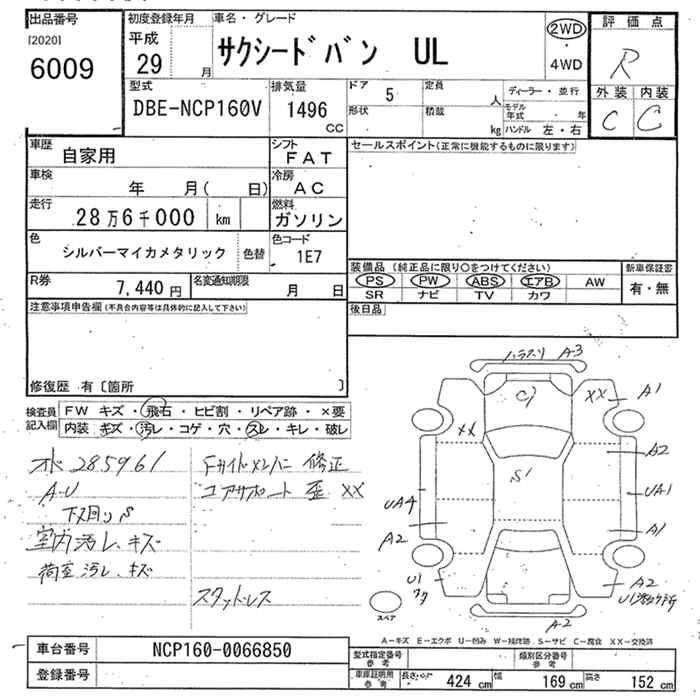 出品番号
[2020]
6009
初度登録年月
平成
29 月
車名・グレード
サクシードバン UL
2WD
・
4WD
評価点
R
外装 内装
C C
型式
DBE-NCP160V
排気量
1496
CC
ドア 5
形状
定員 人
積載 kg
ディーラー・並行
モデル年式 ・ 年
ハンドル 左・右
車歴
自家用
シフト
FAT
車検
年 月( 日)
冷房
AC
走行
28万6千000 km
燃料
ガソリン
色
シルバーマイカメタリック
色替
色コード
1E7
R券
7,440円
名変通知期限
月 日
セールスポイント(正常に機能するものに限ります)
装備品 (純正品に限り○をつけてください)
PS PW ABS エアB AW
SR ナビ TV カワ
新車保証書
有・無
後日品
注意事項申告欄(不具合内容等は具体的に記入して下さい)
修復歴 有〔箇所 〕
検査員
記入欄
FW キズ・飛石・ヒビ割・リペア跡・×要
内装・キズ・汚レ・コゲ・穴・スレ・キレ・破レ
285961
A-U
下廻りS
室内汚レ、キズ
荷室汚レ、キズ
Fサイドメンバー 修正
コアサポート 歪 XX
スタッドレス
A-3
C1
XX A1
XX
A2
S1
UA4 UA1
A2 A1
U1 A2
A-2
スペア
A-キズ E-エクボ U-凹み W-補修跡 S-サビ C-腐食 XX-交換済
車台番号
NCP160-0066850
登録番号
型式指定番号
参考
類別区分番号
参考
車庫証明用
参考
長さ 424 cm
幅 169 cm
高さ 152 cm